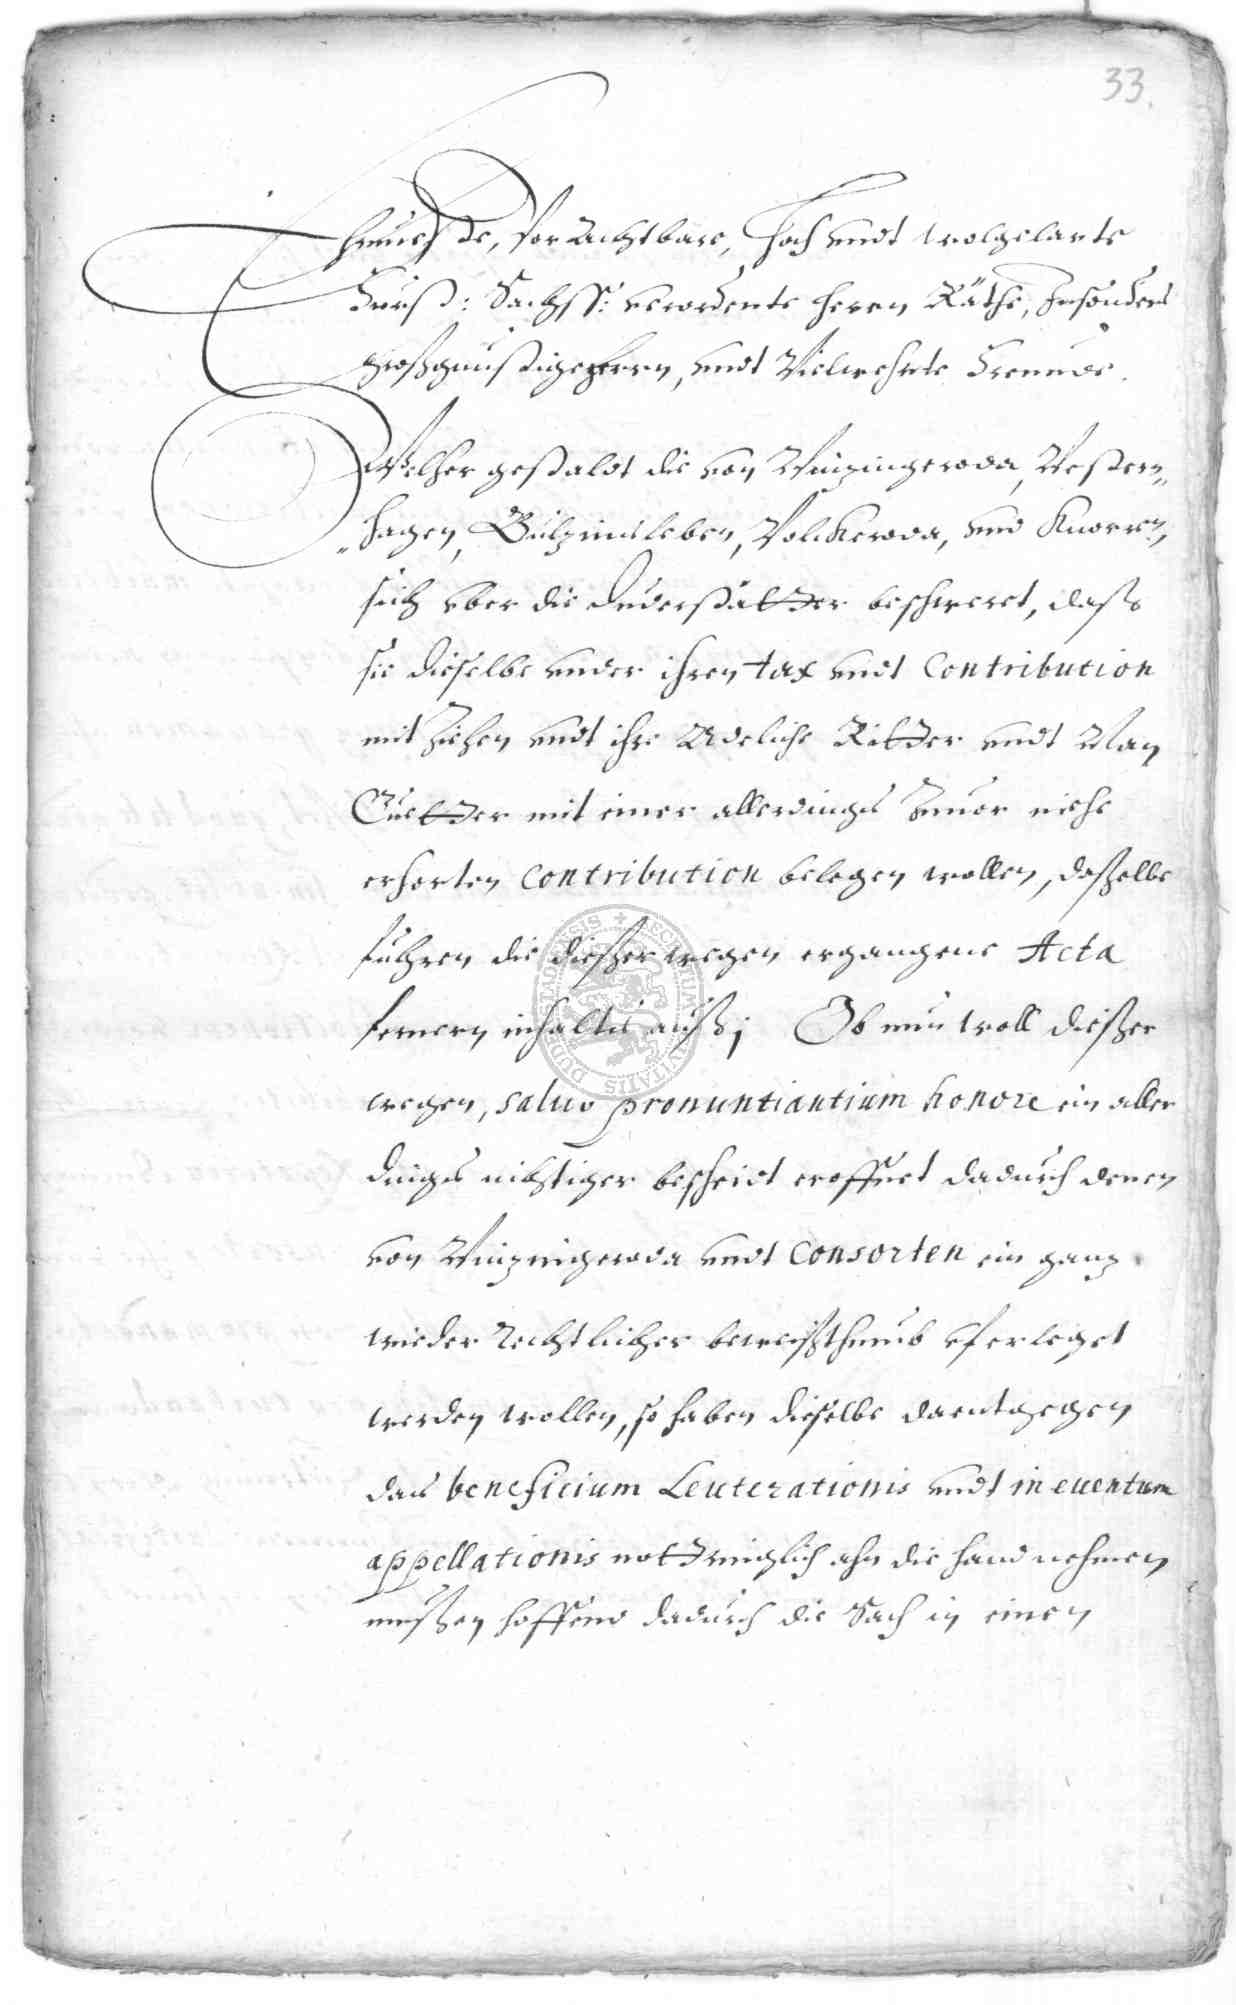 33.
Ehrnueste, Vor Achtbare, Hoch vndt wolgelarte
Fürstl: Sächss: verordente herrn Räthe, Insonders
großgünstige herrn, vndt Vielwehrte Freunde.
Welcher gestaldt die von Winzingeroda, Western„
„hagen, Bülzinsleben, Volckeroda, vnd Knorren,
sich vber die Duderstätter beschweret, dass
sie dieselbe vnder ihren tax vndt Contribution
mit ziehen vndt ihre Adeliche Ritter vndt Man
Guetter mit einer allerdings Zuuor nicht
erhorten Contribution belegen wollen, daßelbe
führen die dießer wegen ergangene Acta
fernern inhalts auß; Ob nun woll dießer
wegen, saluo pronuntiantium honore ein aller
dings nichtiger bescheidt eroffnet dadurch denen
von Winzingeroda vndt Consorten ein ganz
wieder Rechtlicher beweißthumb vferleget
werden wollen, so haben dieselbe daentgegen
das beneficium Leuterationis vndt in euentum
appellationis nottringlich ahn die hand nehmen
mußen hoffend dadurch die Sach in einen
DUDERSTADENSIS + CIVITATIS